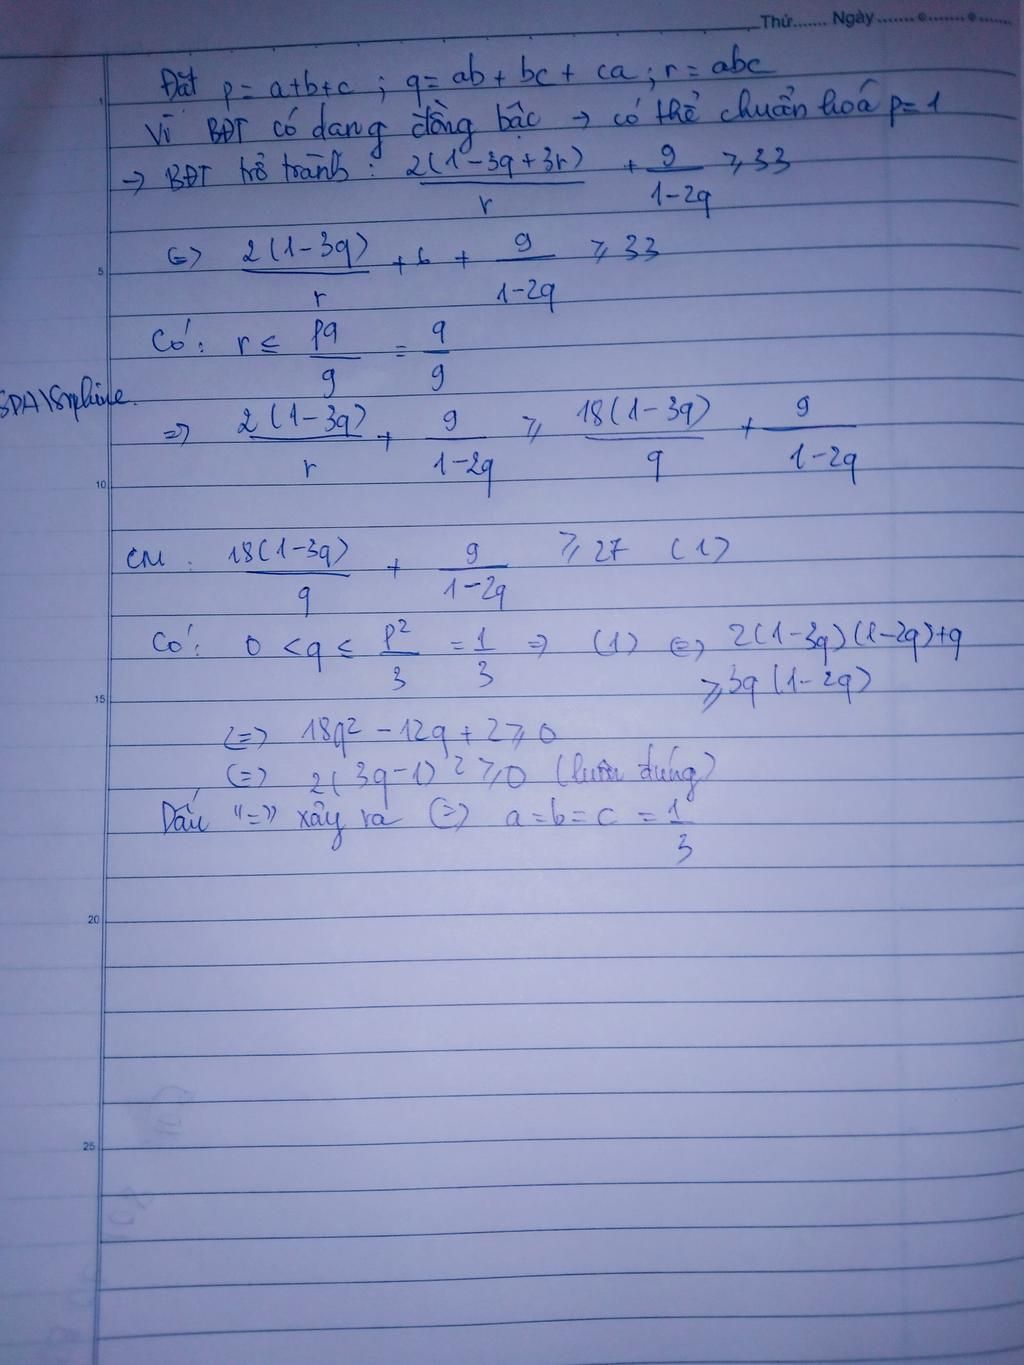 Thứ....... Ngày
Đặt p = a+b+c ; q = ab + bc + ca ; r = abc
Vì BĐT có dạng đồng bậc → có thể chuẩn hoá p = 1
→ BĐT trở thành : 2(1-3q+3r)/r + 9/(1-2q) ≥ 33
5
(=) 2(1-3q)/r + 6 + 9/(1-2q) ≥ 33
Có : r ≤ pq/9 = q/9
=) 2(1-3q)/r + 9/(1-2q) ≥ 18(1-3q)/q + 9/(1-2q)
10
CM : 18(1-3q)/q + 9/(1-2q) ≥ 27 (1)
Có : 0 < q ≤ p²/3 = 1/3 =) (1) (=) 2(1-3q)(1-2q)+q
≥ 3q(1-2q)
15
(=) 18q² - 12q + 2 ≥ 0
(=) 2(3q-1)² ≥ 0 (luôn đúng)
Dấu "=" xảy ra (=) a = b = c = 1/3
20
25